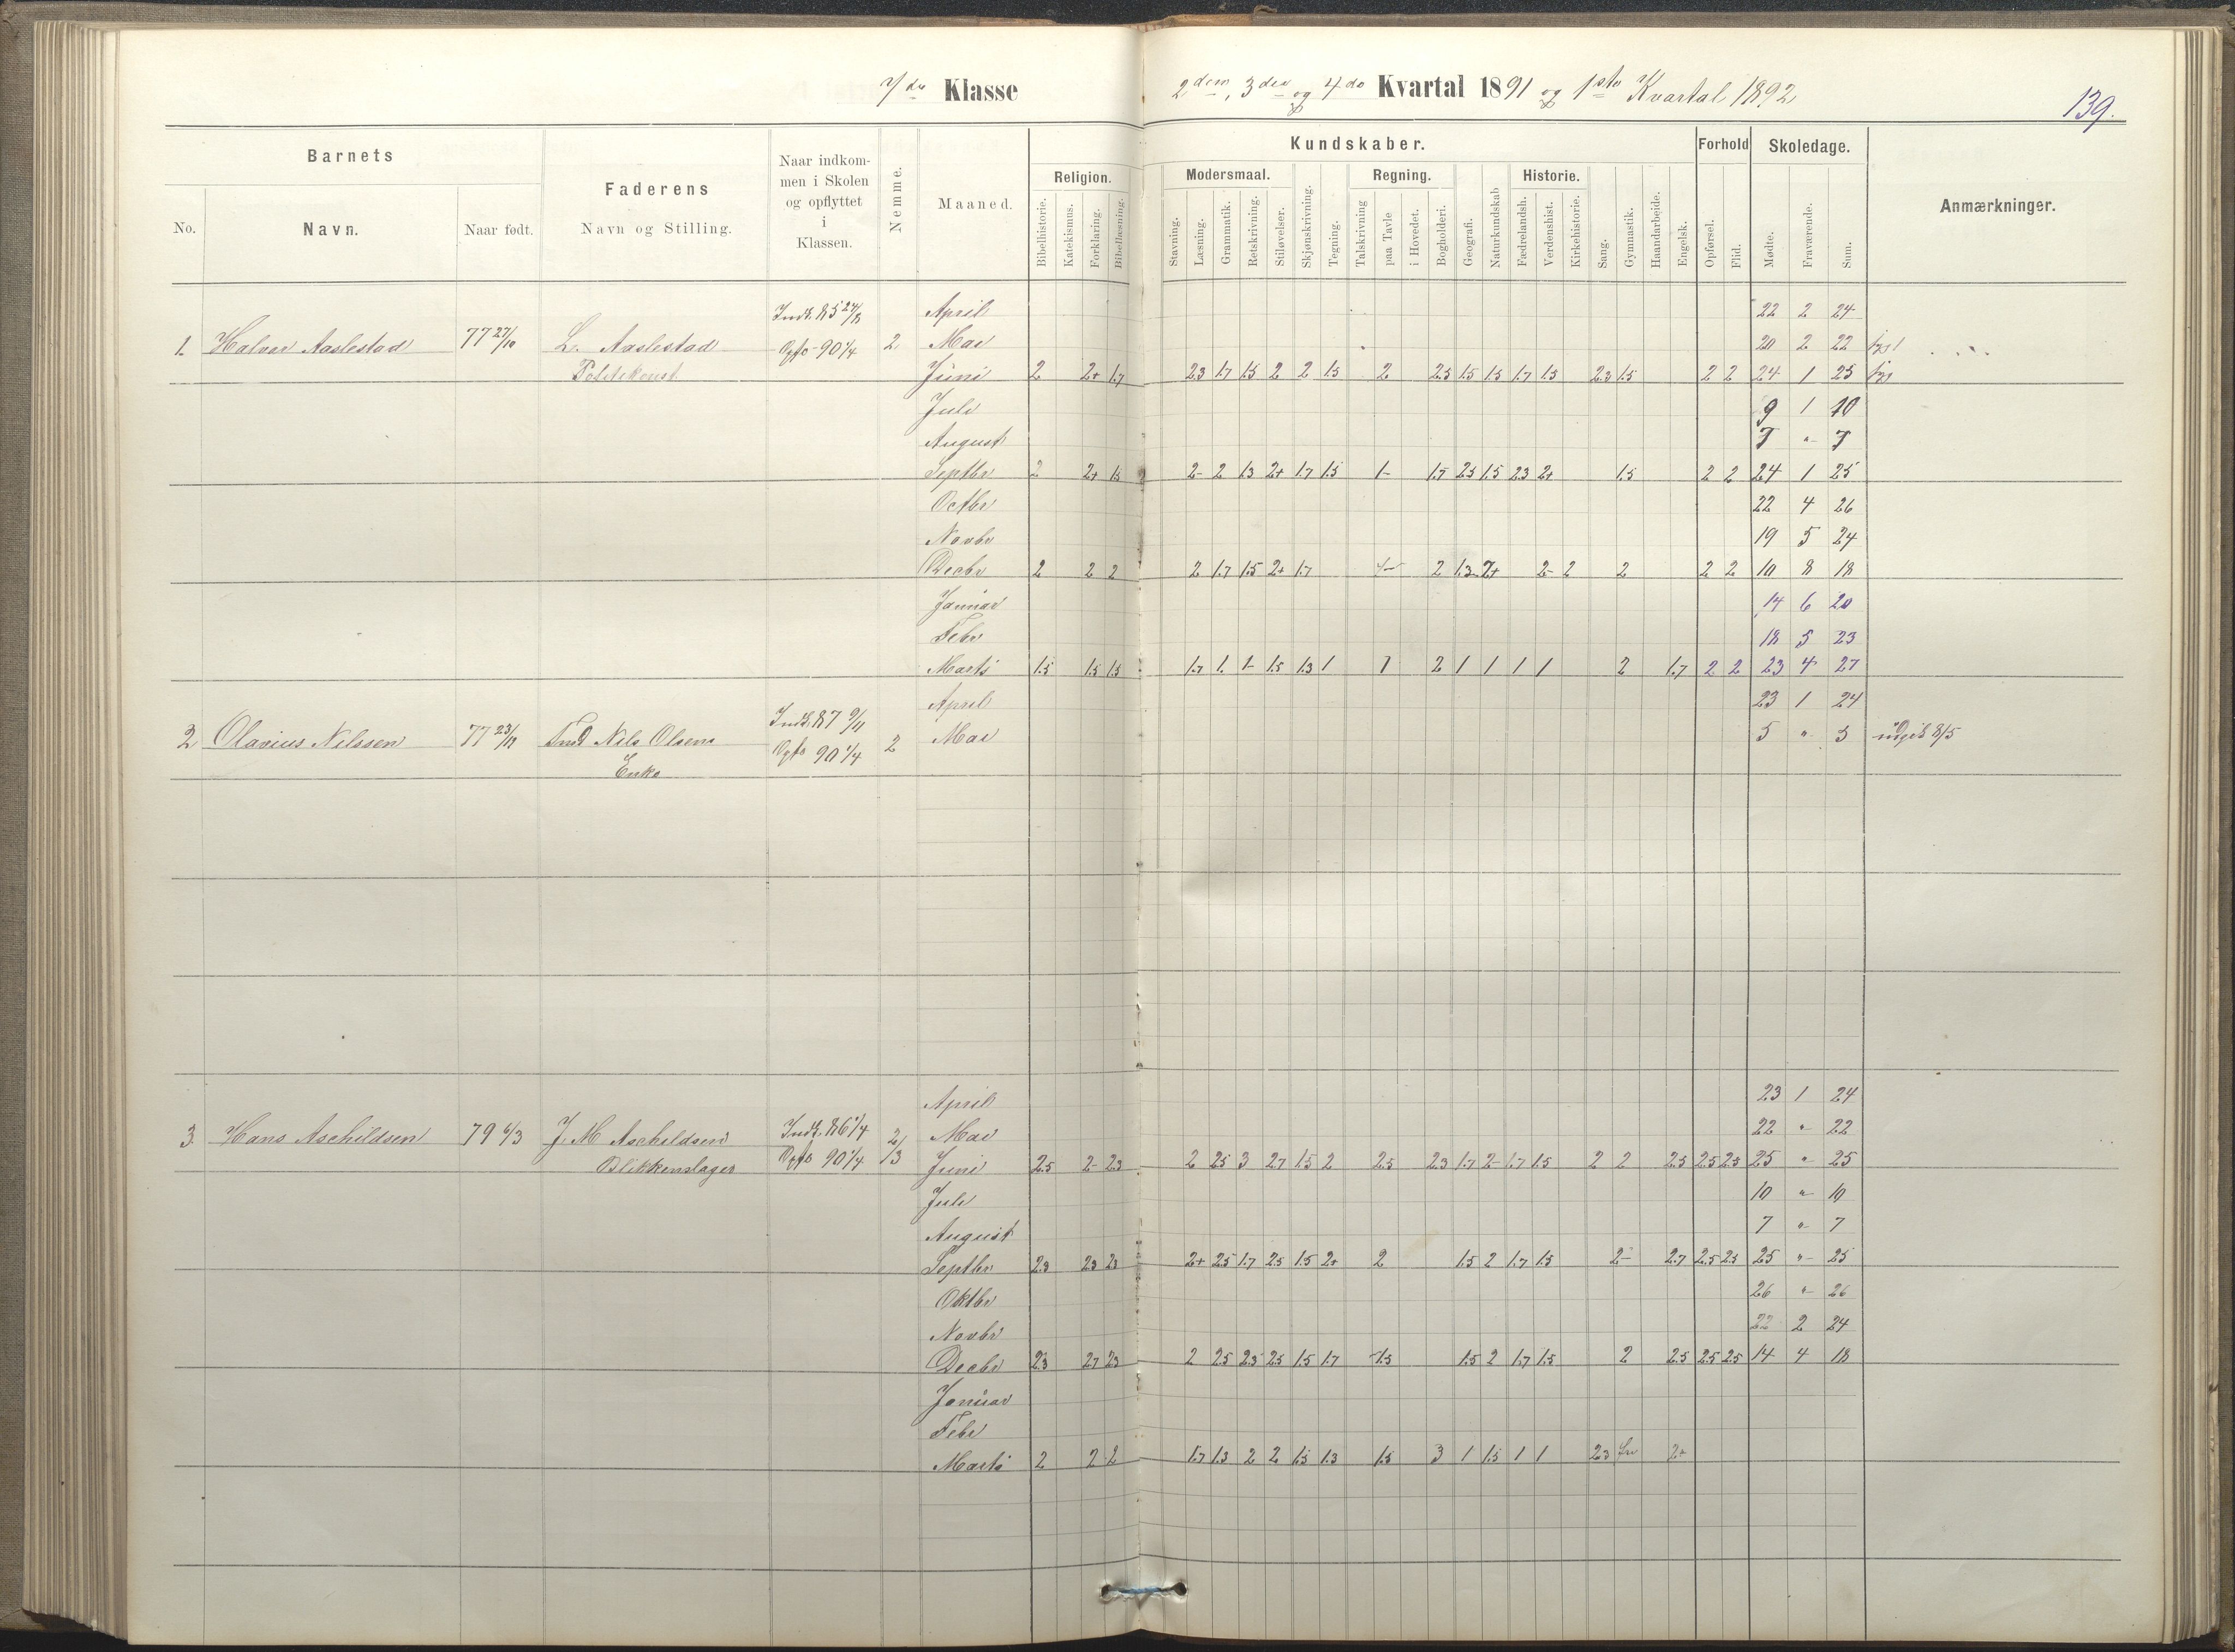 7de Klasse
2den, 3die og 4de Kvartal 1891 og 1ste Kvartal 1892
139.
Barnets
No.
Navn.
Naar født.
Faderens
Navn og Stilling.
Naar indkom-
men i Skolen
og opflyttet
i
Klassen.
Nemme.
Maaned.
Kundskaber.
Religion.
Bibelhistorie.
Katekismus.
Forklaring.
Bibellæsning.
Modersmaal.
Stavning.
Læsning.
Grammatik.
Retskrivning.
Stiløvelser.
Skjønskrivning.
Tegning.
Regning.
Talskrivning
paa Tavle
i Hovedet.
Bogholderi.
Geografi.
Naturkundskab
Historie.
Fædrelandsh.
Verdenshist.
Kirkehistorie.
Sang.
Gymnastik.
Haandarbeide.
Engelsk.
Forhold
Opførsel.
Flid.
Skoledage.
Mødte.
Fraværende.
Sum.
Anmærkninger.
April 22 2 24
1. Halvor Aaslestad 77 27/10 L. Aaslestad Opfl. 90 1/4 2 Mai 20 2 22
Politikonst. Juni 2 2+ 1.7 2.3 1.7 1.5 2 2 1.5 2 2.5 1.5 1.5 1.7 1.5 2.3 1.5 2 2 24 1 25
Juli 9 1 10
August 7 " 7
Septbr 2 2+ 1.5 2- 2 1.3 2+ 1.7 1.5 1- 1.7 2.5 1.5 2.3 2+ 1.5 2 2 24 1 25
Octbr 22 4 26
Novbr 19 5 24
Decbr 2 2 2 2 1.7 1.5 2+ 1.7 2 1.3 2+ 2- 2 2 2 2 10 8 18
Januar 14 6 20
Febr 18 5 23
Marts 1.5 1.5 1.5 1.7 1. 1- 1.5 1.3 1 1 2 1 1 1 1 2 1.7 2 2 23 4 27
April 23 1 24
2 Olavius Nilssen 77 Nils Olsens Opfl. 90 1/4 2 Mai 5 " 5 udgik 8/5
Enke
April 23 1 24
3. Hans Aschildsen 79 6/3 J. M. Aschildsen Indk. 86 1/4 2/ Mai 22 " 22
Blikkenslager Opfl. 90 1/4 /3 Juni 2.5 2- 2.3 2 2.5 3 2.7 1.5 2 2.5 2.3 1.7 2- 1.7 1.5 2 2 2.5 2.5 2.5 25 " 25
Juli 10 " 10
August 7 " 7
Septbr 2.3 2.3 2.3 2+ 2.5 1.7 2.5 1.5 2+ 2 1.5 2 1.7 1.5 2- 2.7 2.5 2.5 25 " 25
Oktbr 26 " 26
Novbr 22 2 24
Decbr 2.3 2.7 2.3 2 2.5 2.5 2.5 1.5 1.7 1.5 1.5 2 1.7 1.5 2 2.5 2.5 2.5 14 4 18
Januar
Febr
Marts 2 2 2 1.7 1.3 2 2 1.5 1.3 1.5 3 1 1.5 1 1 2.3 fri 2+